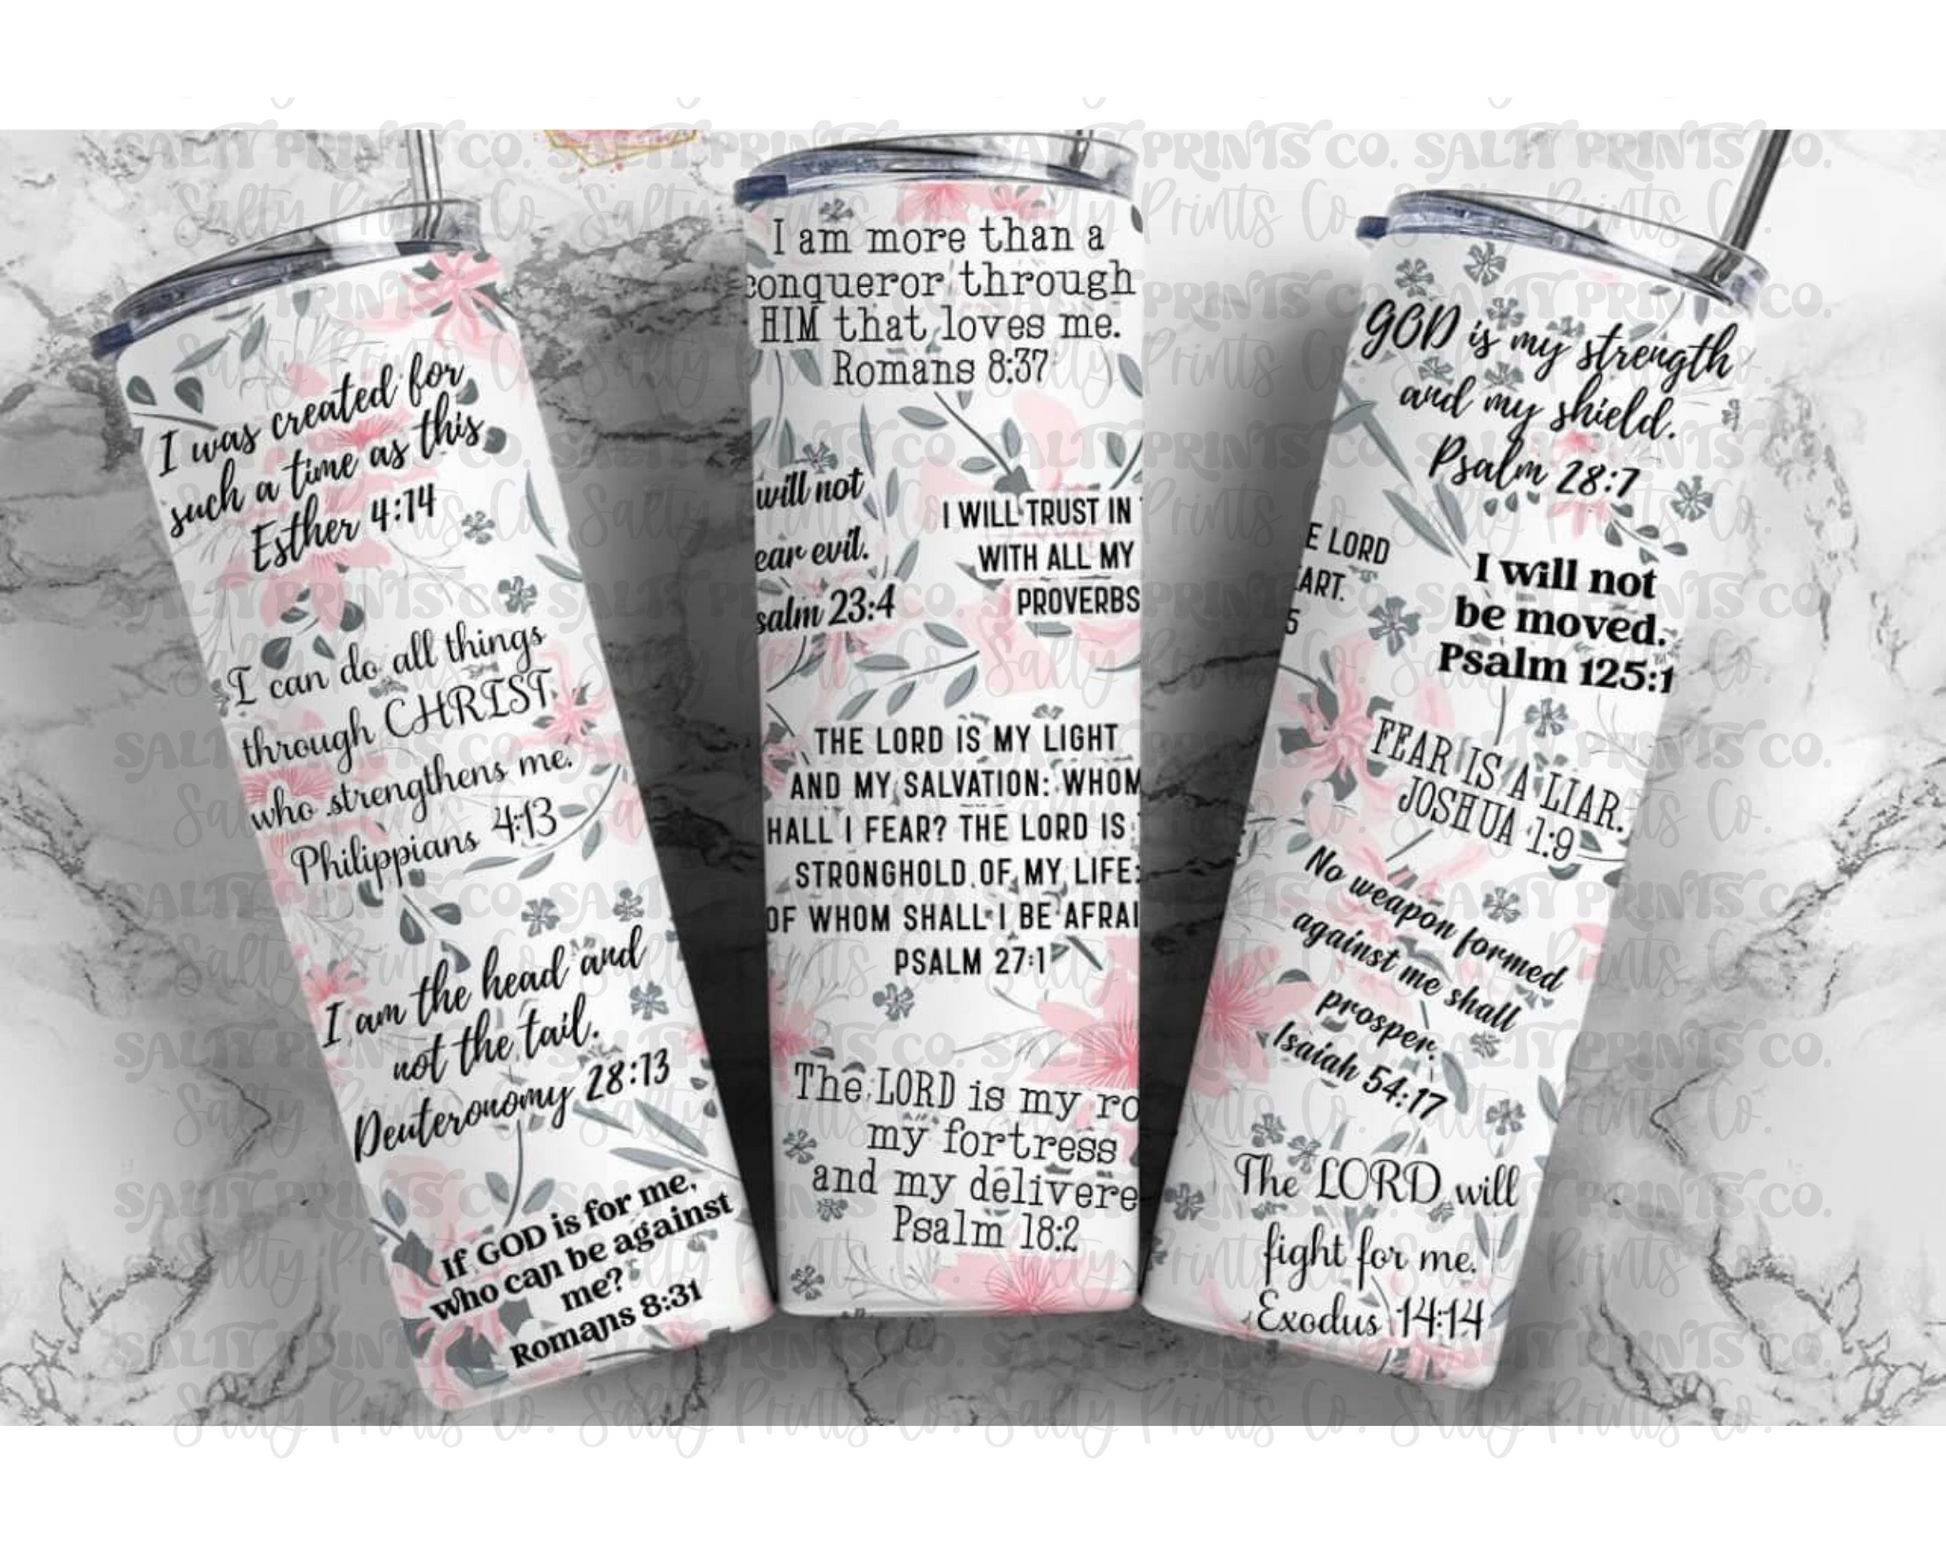 I was created for
such a time as this
Esther 4:14
I can do all things
through CHRIST
who strengthens me.
Philippians 4:13
I am the head and
not the tail.
Deuteronomy 28:13
If GOD is for me,
who can be against
me?
Romans 8:31
I am more than a
conqueror through
HIM that loves me.
Romans 8:37
will not
ear evil.
salm 23:4
I WILL TRUST IN
WITH ALL MY
PROVERBS
THE LORD IS MY LIGHT
AND MY SALVATION: WHOM
HALL I FEAR? THE LORD IS
STRONGHOLD OF MY LIFE:
OF WHOM SHALL I BE AFRAI
PSALM 27:1
The LORD is my ro
my fortress
and my delivere
Psalm 18:2
GOD is my strength
and my shield.
Psalm 28:7
E LORD
EART.
5
I will not
be moved.
Psalm 125:1
FEAR IS A LIAR.
JOSHUA 1:9
No weapon formed
against me shall
prosper.
Isaiah 54:17
The LORD will
fight for me.
Exodus 14:14
SALTY PRINTS CO.
Salty Prints Co.